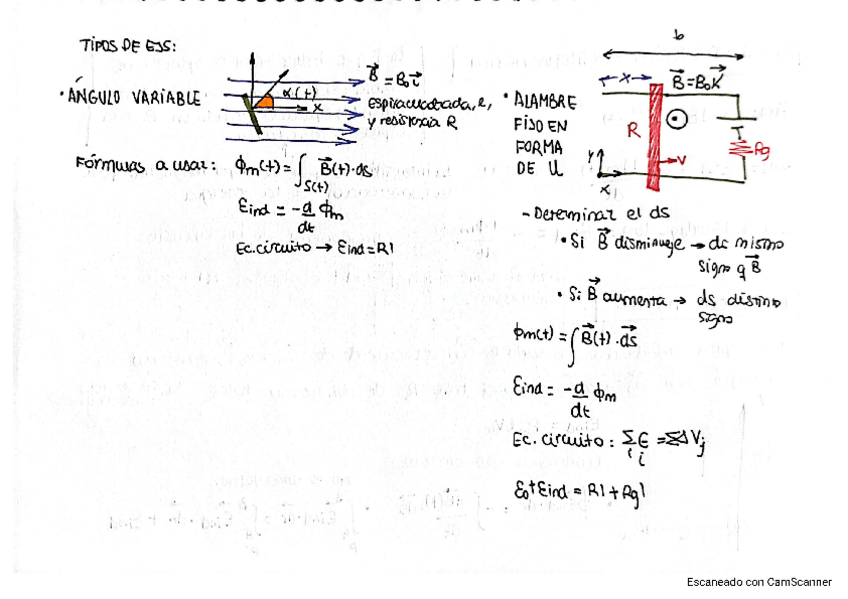 TIPOS DE EJS:
• ÁNGULO VARIABLE
α(t)
x
B⃗ = B₀ı⃗
espira cuadrada, a,
y resistencia R
Fórmulas a usar: ϕm(t) = ∫S(t) B⃗(t)·ds
Eind = -d/dt ϕm
Ec. circuito → Eind = RI
• ALAMBRE
FIJO EN
FORMA
DE U
b
x
B⃗ = B₀K⃗
R
v
Rg
y
x
- Determinar el ds
• Si B⃗ disminuye → ds mismo
signo q B⃗
• Si B⃗ aumenta → ds distinto
signo
ϕm(t) = ∫ B⃗(t)·ds⃗
Eind = -d/dt ϕm
Ec. circuito: Σi Ei = ΣΔVj
E₀ + Eind = RI + RgI
Escaneado con CamScanner